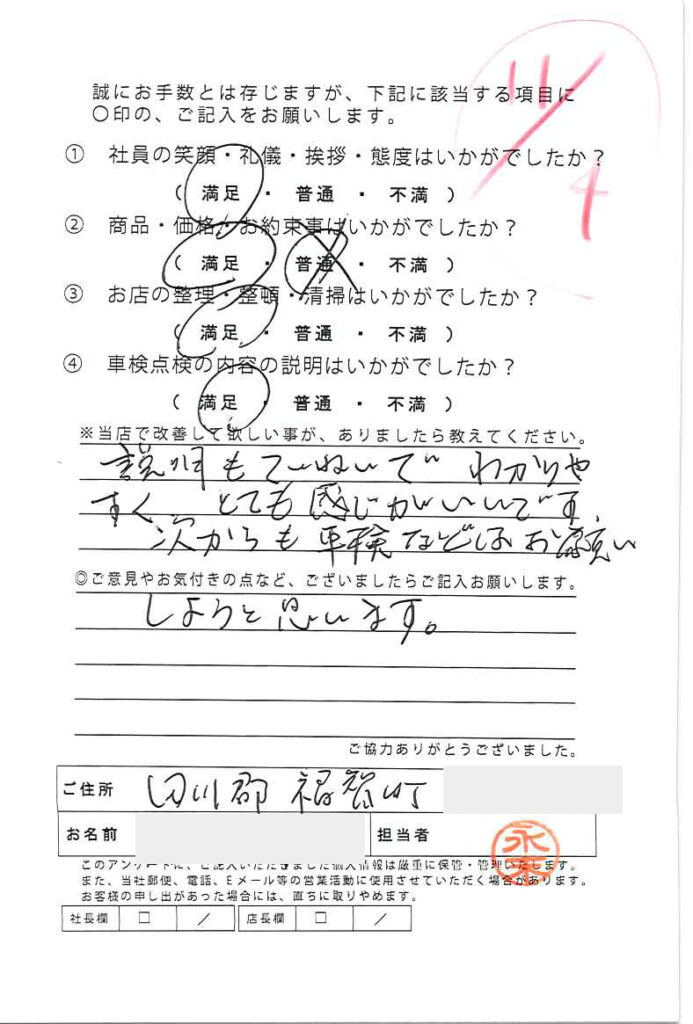 11/4
誠にお手数とは存じますが、下記に該当する項目に
〇印の、ご記入をお願いします。
① 社員の笑顔・礼儀・挨拶・態度はいかがでしたか？
（ 満足 ・ 普通 ・ 不満 ）
② 商品・価格・お約束事はいかがでしたか？
（ 満足 ・ 普通 ・ 不満 ）
③ お店の整理・整頓・清掃はいかがでしたか？
（ 満足 ・ 普通 ・ 不満 ）
④ 車検点検の内容の説明はいかがでしたか？
（ 満足 ・ 普通 ・ 不満 ）
※当店で改善して欲しい事が、ありましたら教えてください。
説明もていねいで わかりや
すく、とても感じがいいです。
次からも車検などはお願い
◎ご意見やお気付きの点など、ございましたらご記入お願いします。
しようと思います。
ご協力ありがとうございました。
ご住所 田川郡 福智町
お名前 担当者
このアンケートに、ご記入いただきました個人情報は厳重に保管・管理いたします。
また、当社郵便、電話、Eメール等の営業活動に使用させていただく場合があります。
お客様の申し出があった場合には、直ちに取りやめます。
社長欄 □ ／ 店長欄 □ ／